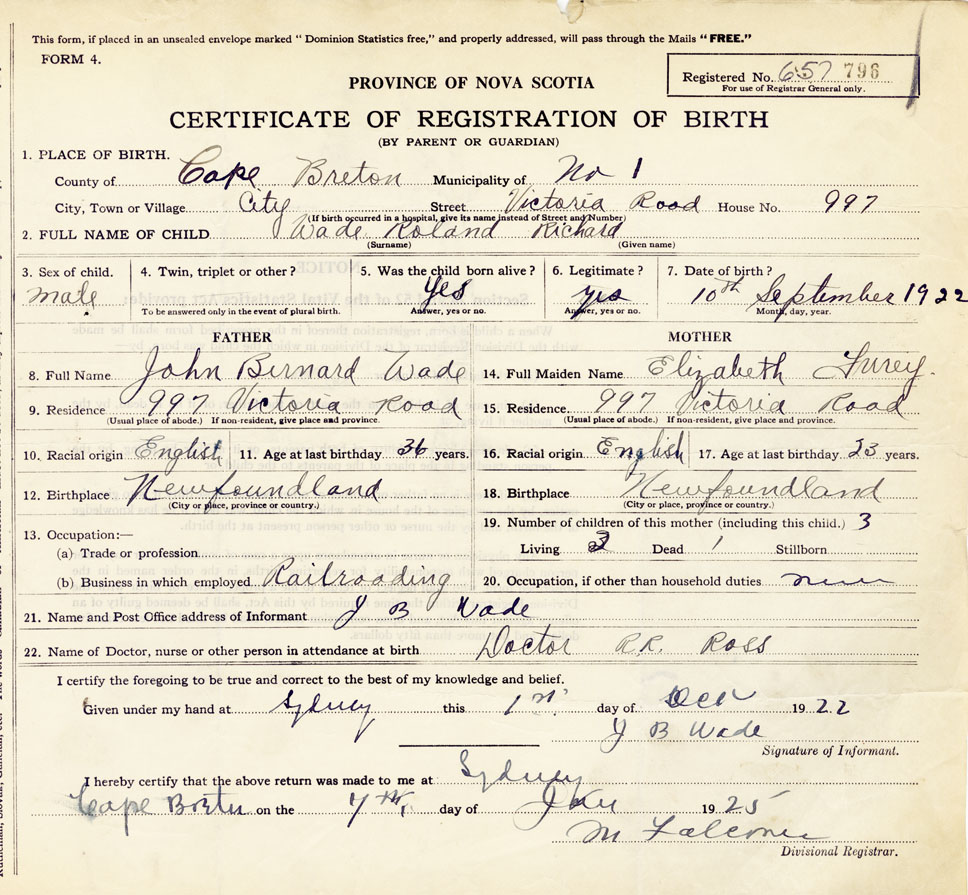 This form, if placed in an unsealed envelope marked “ Dominion Statistics free,” and properly addressed, will pass through the Mails “ FREE.”
FORM 4.
Registered No. 657 796
For use of Registrar General only.
PROVINCE OF NOVA SCOTIA
CERTIFICATE OF REGISTRATION OF BIRTH
(BY PARENT OR GUARDIAN)
1. PLACE OF BIRTH.
County of Cape Breton Municipality of No 1
City, Town or Village City Street Victoria Road House No. 997
(If birth occurred in a hospital, give its name instead of Street and Number)
2. FULL NAME OF CHILD Wade Roland Richard
(Surname) (Given name)
3. Sex of child. 4. Twin, triplet or other? 5. Was the child born alive? 6. Legitimate? 7. Date of birth?
male Yes yes 10th September 1922
To be answered only in the event of plural birth. Answer, yes or no. Answer, yes or no. Month, day, year.
FATHER
8. Full Name John Bernard Wade
9. Residence 997 Victoria Road
(Usual place of abode.) If non-resident, give place and province.
10. Racial origin English 11. Age at last birthday 36 years.
12. Birthplace Newfoundland
(City or place, province or country.)
13. Occupation:—
(a) Trade or profession
(b) Business in which employed Railroading
MOTHER
14. Full Maiden Name Elizabeth Furey.
15. Residence. 997 Victoria Road
(Usual place of abode.) If non-resident, give place and province.
16. Racial origin English 17. Age at last birthday 23 years.
18. Birthplace Newfoundland
(City or place, province or country.)
19. Number of children of this mother (including this child.) 3
Living Dead 1 Stillborn
20. Occupation, if other than household duties
21. Name and Post Office address of Informant J B Wade
22. Name of Doctor, nurse or other person in attendance at birth Doctor R.R. Ross
I certify the foregoing to be true and correct to the best of my knowledge and belief.
Given under my hand at Sydney this 1st day of Oct 1922
J B Wade
Signature of Informant.
I hereby certify that the above return was made to me at Sydney
Cape Breton on the 7th, day of 1925
M Falconer
Divisional Registrar.